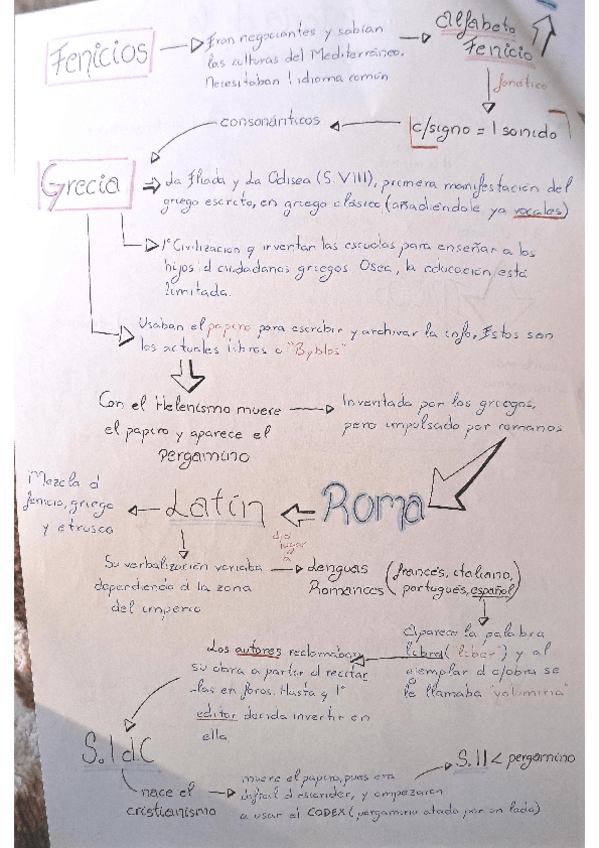 Fenicios
Eran negociantes y sabían
las culturas del Mediterráneo.
Necesitaban 1 idioma común
Alfabeto
Fenicio
fonético
c/signo = 1 sonido
consonánticos
Grecia
La Ilíada y La Odisea (S. VIII), primera manifestación del
griego escrito, en griego clásico (añadiéndole ya vocales)
1ª Civilización q inventar las escuelas para enseñar a los
hijos d ciudadanos griegos. Osea, la educación está
limitada.
Usaban el papiro para escribir y archivar la info, Estos son
los actuales libros o "Byblos"
Con el Helenismo muere
el papiro y aparece el
pergamino
Inventada por los griegos,
pero impulsado por romanos
Roma
Latín
Mezcla d
fenicio, griego
y etrusco
Su verbalización variaba
dependiendo d la zona
del imperio
dio
lugar
a
Lenguas
Romances
(francés, italiano,
portugués, español)
Aparece la palabra
libro ("liber") y al
ejemplar d c/obra se
le llamaba "volumina"
Los autores reclamaban
su obra a partir d recitar
-las en foros. Hasta q 1º
editor decida invertir en
ella
S. I d.C
nace el
cristianismo
muere el papiro, pues era
difícil d esconder, y empezaron
a usar el CODEX (pergamino atado por un lado)
S. II < pergamino